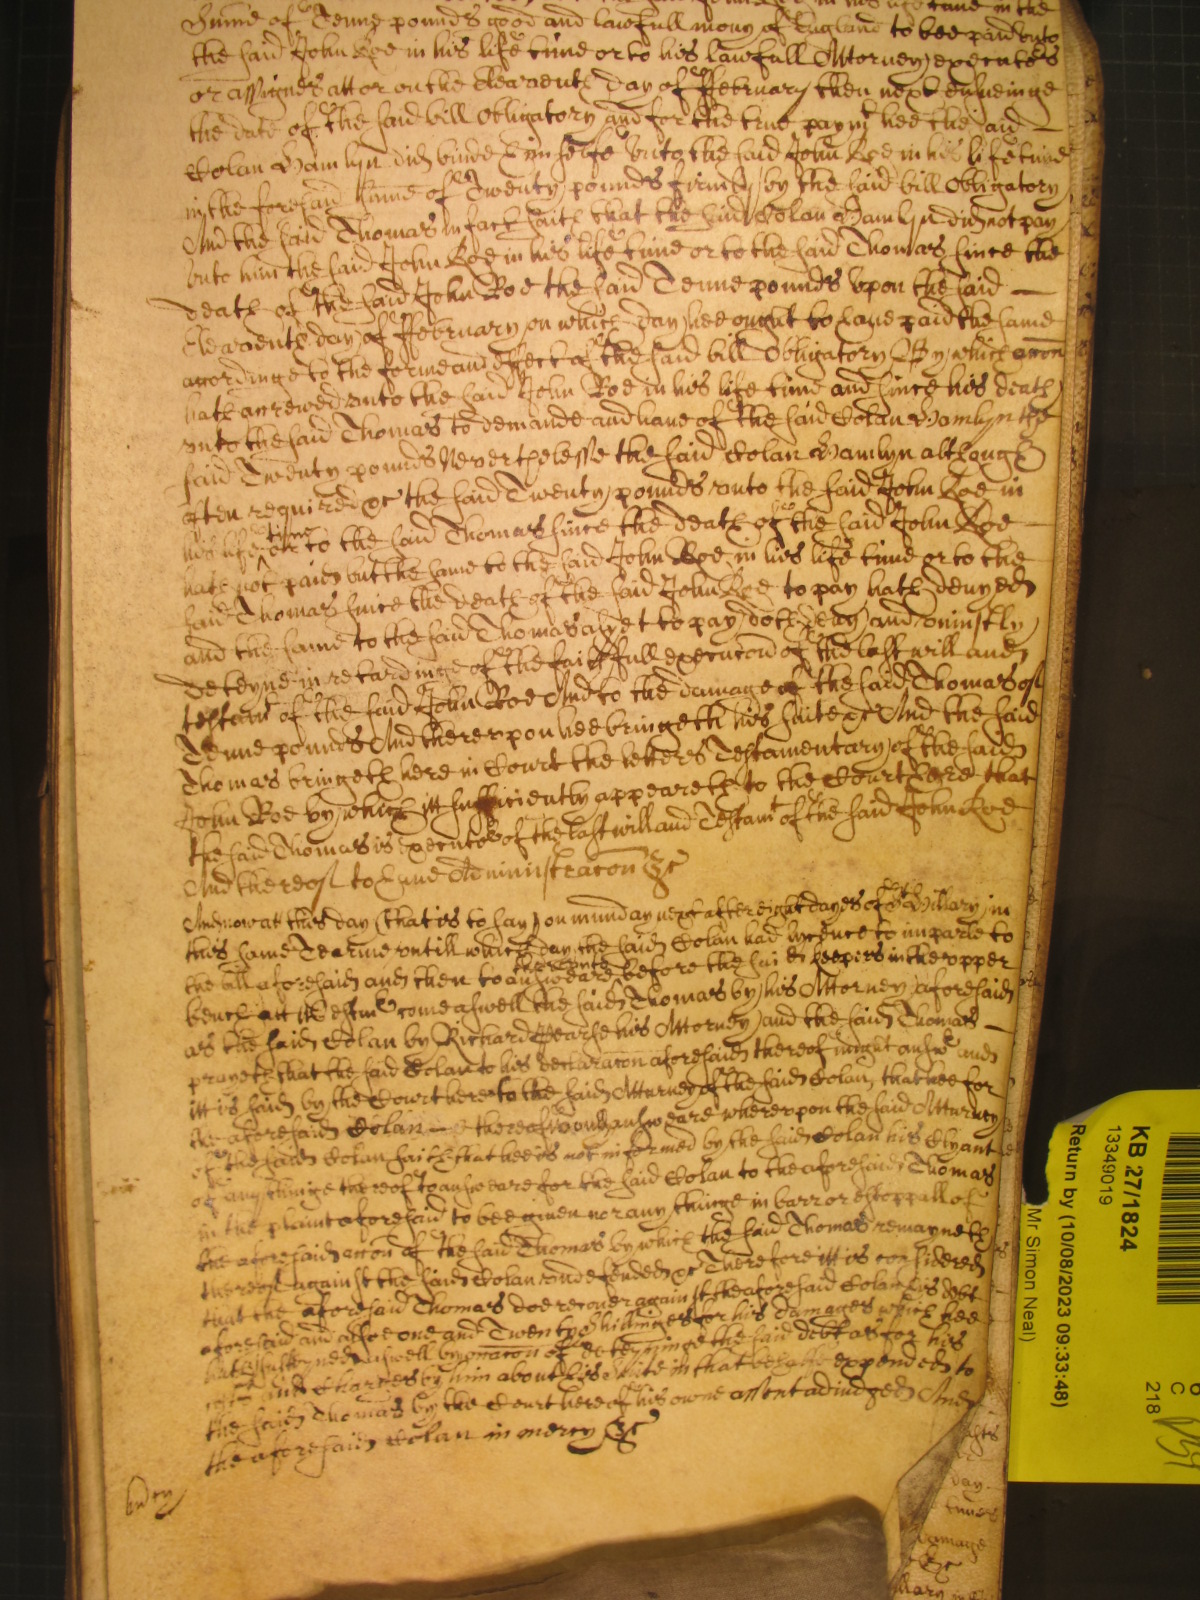 Summe of Tenne pounds good and lawfull mony of England to bee paid unto
the said John Roe in his life time or to his lawfull Attorney executors
or assignes att or on the Eleaventh day of ffebruary then next ensueinge
the date of the said bill Obligatory and for the true paymt hee the said
Colan Hamlyn did binde himselfe unto the said John Roe in his life time
in the foresaid summe of Twenty pounds firmly by the said bill Obligatory
And the said Thomas in fact saith that the said Colan Hamlyn did not pay
unto him the said John Roe in his life time or to the said Thomas since the
death of the said John Roe the said Tenne pounds upon the said
Eleaventh day of ffebruary on which day hee ought to have paid the same
accordinge to the forme and effect of the said bill Obligatory By which accon
hath accrewed unto the said John Roe in his life time and since his death
unto the said Thomas to demande and have of the said Colan Hamlyn the
said Twenty pounds Neverthelesse the said Colan Hamlyn although
often required &c the said Twenty pounds unto the said John Roe in
his life time or to the said Thomas since the death of the said John Roe
hath not paid but the same to the said John Roe in his life time or to the
said Thomas since the death of the said John Roe to pay hath denyed
and the same to the said Thomas as yet to pay doth deny and uniustly
deteyne in retardinge of the faithfull execucon of the last will and
testamt of the said John Roe And to the damage of the said Thomas of
Tenne pounds And thereupon hee bringeth his suite &c And the said
Thomas bringeth here in Court the letters Testamentary of the said
John Roe by which itt sufficiently appeareth to the Court here that
the said Thomas is executor of the last will and Testamt of the said John Roe
And thereof to have Administracon &c
And now at this day (that is to say) on munday next after eight dayes of St Hillary in
this same Tearme untill which day the said Colan had lycence to imparle to
the bill aforesaid and then to answeare thereunto before the said keepers in the upper
bench att Westmr come aswell the said Thomas by his Attorney aforesaid
as the said Colan by Richard Pearse his Attorney and the said Thomas
prayeth that the said Colan to his declaracon aforesaid thereof might answr and
itt is said by the Court here to the said Atturney of the said Colan, that hee for
the aforesaid Colan thereof should answeare whereupon the said Atturney
of the said Colan saith that hee is not informed by the said Colan his Clyant
of any thinge thereof to answeare for the said Colan to the aforesaid Thomas
in the plaint aforesaid to bee given nor any thinge in barr or estoppall of
the aforesaid accon of the said Thomas by which the said Thomas remayneth
thereof against the said Colan undefended &c Therefore itt is considered
that the aforesaid Thomas doe recover against the aforesaid Colan his debt
aforesaid and alsoe one and Twenty Shillings for his damages which hee
hath susteyned aswell by occacon of deteyninge the said debt as for his
costs and Charges by him about his Suite in that behalfe expended to
the said Thomas by the Court here of his owne assent adiudged And
the aforesaid Colan in mercy &c
KB 27/1824
13349019
Return by (10/08/2023 09:33:48)
Mr Simon Neal)
C
218
day
damage
&c